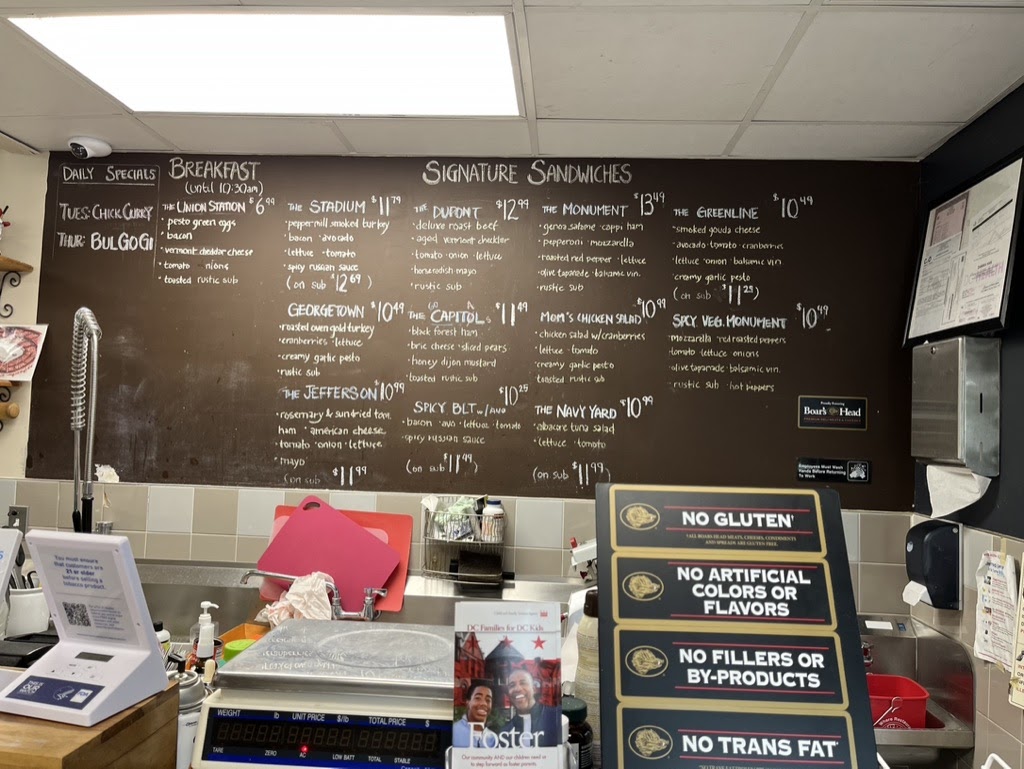 DAILY SPECIALS
TUES: CHICK CURRY
THUR: BULGOGI
BREAKFAST
(until 10:30am)
THE UNION STATION $6.99
• pesto green eggs
• bacon
• vermont cheddar cheese
• tomato • nions
• toasted rustic sub
SIGNATURE SANDWICHES
THE STADIUM $11.79
• peppermill smoked turkey
bacon • avocado
• lettuce • tomato
• spicy russian sauce
(on sub $12.69)
GEORGETOWN $10.49
• roasted ovengold turkey
cranberries • lettuce
• creamy garlic pesto
• rustic sub
THE JEFFERSON $10.99
• rosemary & sundried tom.
ham • american cheese
• tomato • onion • lettuce
• mayo
(on sub $11.99
THE DUPONT $12.99
• deluxe roast beef
• aged vermont cheddar
• tomato • onion • lettuce
• horseradish mayo
• rustic sub
THE CAPITOL $11.49
• black forest ham
• brie cheese • sliced pears
• honey dijon mustard
• toasted rustic sub
SPICY BLT w/ AVO $10.25
• bacon • avo • lettuce • tomato
spicy russian sauce
(on sub $11.49)
THE MONUMENT $13.49
• genoa salame • cappi ham
• pepperoni • mozzarella
• roasted red pepper • lettuce
• olive tapanade • balsamic vin.
• rustic sub
MOM'S CHICKEN SALAD $10.99
• chicken salad w/cranberries
• lettuce • tomato
• creamy garlic pesto
toasted rustic sub
THE NAVY YARD $10.99
• albacore tuna salad
• lettuce • tomato
(on sub $11.99)
THE GREENLINE $10.49
• smoked gouda cheese
• avocado • tomato • cranberries
• lettuce • onion • balsamic vin
• creamy garlic pesto
(on sub $11.25)
SPCY. VEG. MONUMENT $10.49
• Mozzarella • red roasted peppers
• tomato • lettuce onions
• olive tapanade • balsamic vin.
• rustic sub • hot peppers
Boar's Head
Employees Must Wash
Hands Before Returning
To Work
You must ensure
that customers are
21 or older
before selling a
tobacco product.
WEIGHT lb UNIT PRICE $/lb TOTAL PRICE $
TARE ZERO AC LOW BATT TOTAL STABLE
DC Families for DC Kids
Foster
Our community AND our children need you
to step forward as foster parents.
NO GLUTEN
ALL BOARS HEAD MEATS, CHEESES, CONDIMENTS
AND SPREADS ARE GLUTEN FREE.
NO ARTIFICIAL
COLORS OR
FLAVORS
NO FILLERS OR
BY-PRODUCTS
NO TRANS FAT